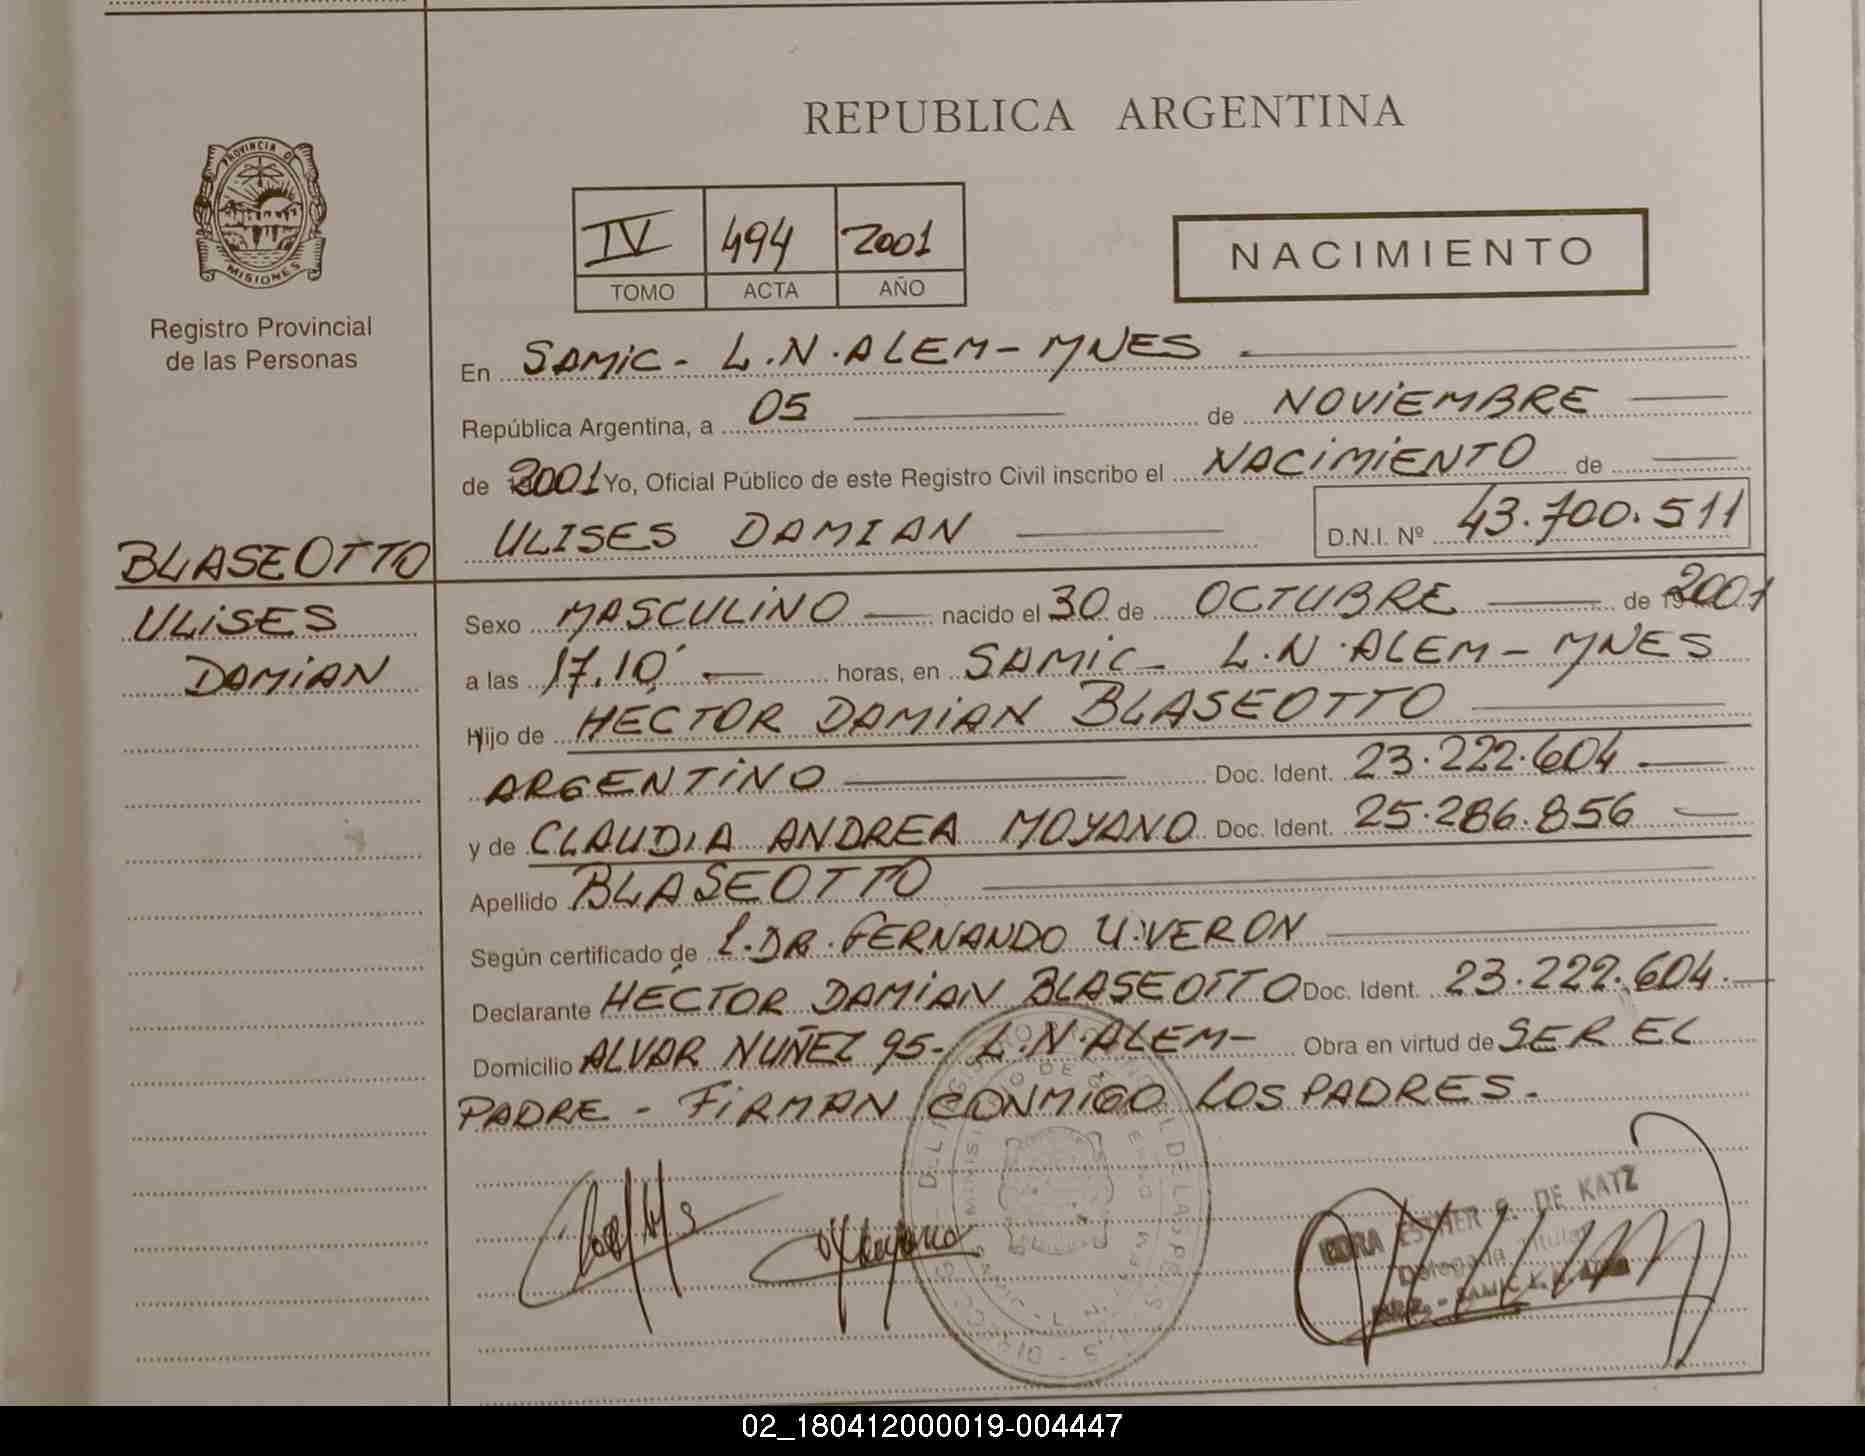 REPUBLICA ARGENTINA
PROVINCIA DE
MISIONES
Registro Provincial
de las Personas
IV 494 2001
TOMO ACTA AÑO
NACIMIENTO
En SAMIC - L.N. ALEM - MNES
República Argentina, a 05 de NOVIEMBRE
de 2001 Yo, Oficial Público de este Registro Civil inscribo el NACIMIENTO de
ULISES DAMIAN D.N.I. Nº 43.700.511
BLASEOTTO
ULISES
DAMIAN
Sexo MASCULINO nacido el 30 de OCTUBRE de 2001
a las 17,10' horas, en SAMIC - L.N. ALEM - MNES
Hijo de HECTOR DAMIAN BLASEOTTO
ARGENTINO Doc. Ident. 23.222.604
y de CLAUDIA ANDREA MOYANO Doc. Ident. 25.286.856
Apellido BLASEOTTO
Según certificado de L. DR. FERNANDO U. VERON
Declarante HECTOR DAMIAN BLASEOTTO Doc. Ident. 23.222.604.
Domicilio ALVAR NUÑEZ 95 - L.N. ALEM - Obra en virtud de SER EL
PADRE - FIRMAN CONMIGO LOS PADRES.
ESTHER G. DE KATZ
Delegada Titular
02_180412000019-004447